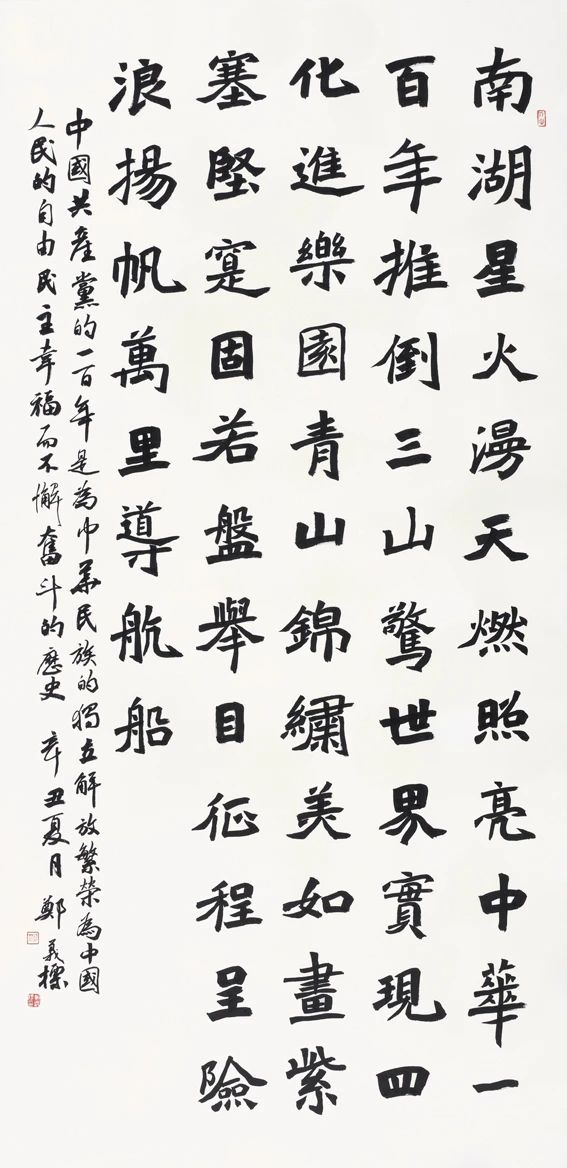 南湖星火漫天燃照亮中華一
百年推倒三山驚世界實現四
化進樂園青山錦繡美如畫紫
塞堅寔固若盤舉目征程呈險
浪揚帆萬里導航船
中國共產黨的一百年是為中華民族的獨立解放繁榮為中國
人民的自由民主幸福而不懈奮斗的歷史 辛丑夏月 鄭義標